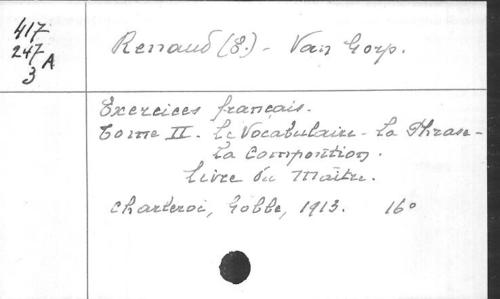 417
247 A
3
Renaud (E.) - Van Gorp.
Exercices français.
Tome II. Le Vocabulaire - La Phrase -
La Composition.
Livre du Maître.
Charleroi, Gobbe, 1913. 16°